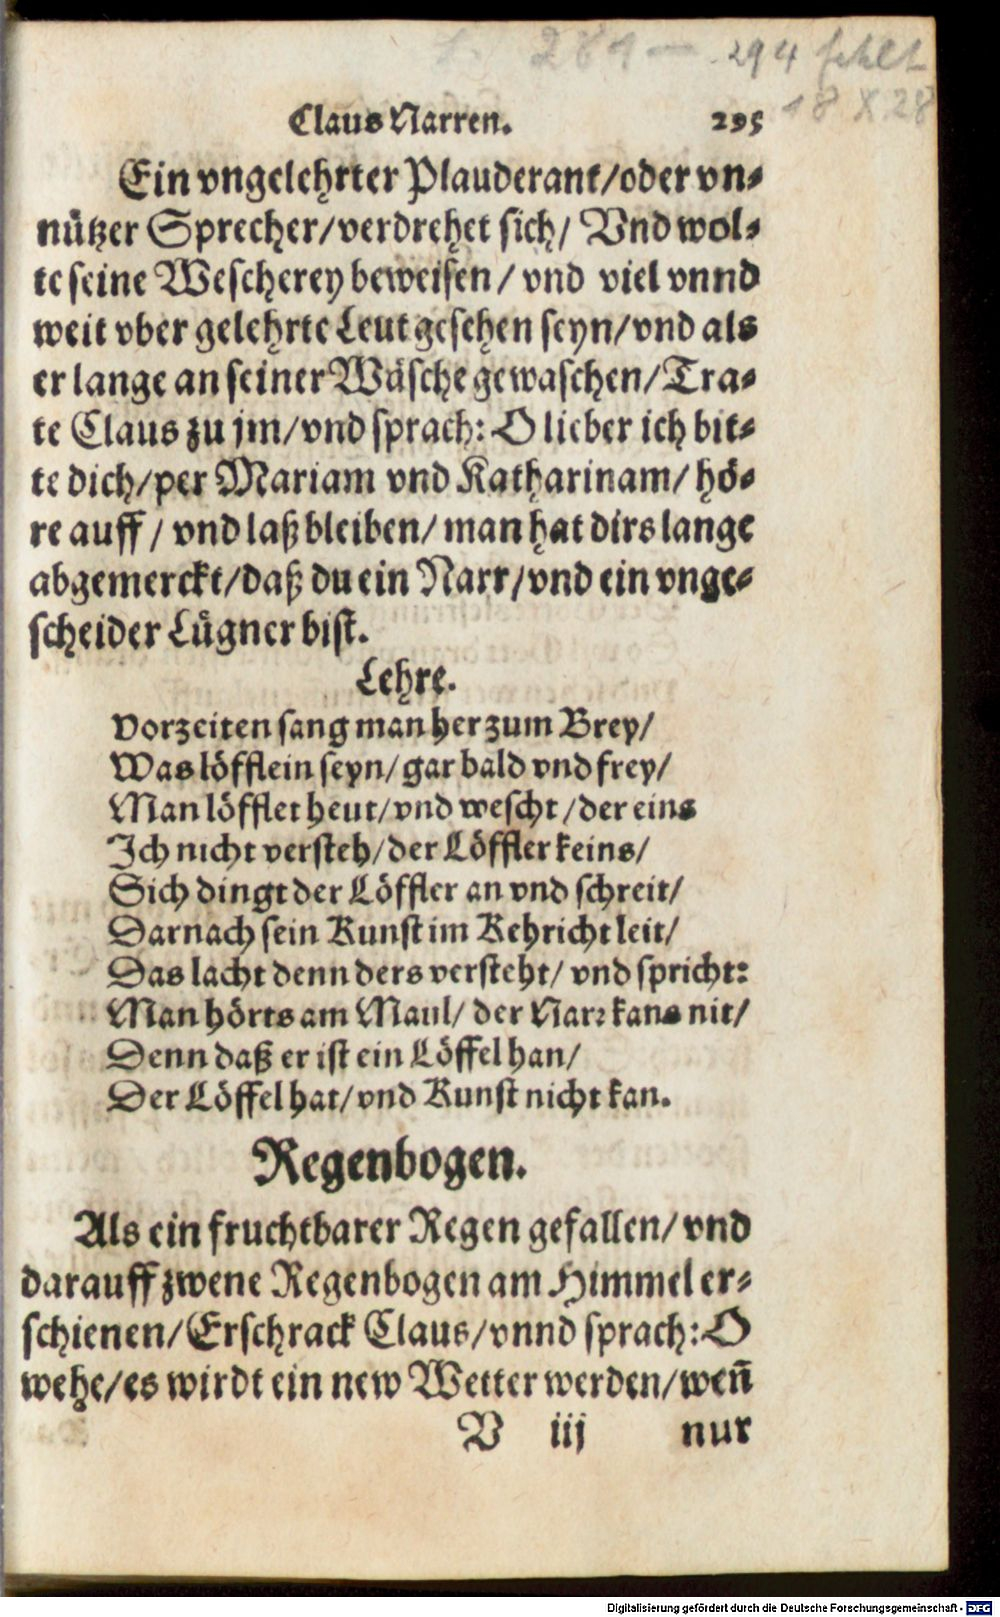 281 — 294 fehlt
18 X 28
Claus Narren. 295
Ein vngelehrter Plauderant/oder vn⸗
nützer Sprecher/verdrehet sich/ Vnd wol⸗
te seine Wescherey beweisen/ vnd viel vnnd
weit vber gelehrte Leut gesehen seyn/vnd als
er lange an seiner Wäsche gewaschen/Tra⸗
te Claus zu jm/vnd sprach: O lieber ich bit⸗
te dich/per Mariam vnd Katharinam/ hö⸗
re auff/ vnd laß bleiben/ man hat dirs lange
abgemerckt/daß du ein Narr/vnd ein vnge⸗
scheider Lügner bist.
Lehre.
Vorzeiten sang man her zum Brey/
Was löfflein seyn/gar bald vnd frey/
Man löfflet heut/vnd wescht/der eins
Ich nicht versteh/der Löffler keins/
Sich dingt der Löffler an vnd schreit/
Darnach sein Kunst im Kehricht leit/
Das lacht denn ders versteht/ vnd spricht:
Man hörts am Maul/ der Narr kans nit/
Denn daß er ist ein Löffel han/
Der Löffel hat/vnd Kunst nicht kan.
Regenbogen.
Als ein fruchtbarer Regen gefallen/vnd
darauff zwene Regenbogen am Himmel er⸗
schienen/Erschrack Claus/vnnd sprach: O
wehe/es wirdt ein new Wetter werden/weñ
V iij nur
Digitalisierung gefördert durch die Deutsche Forschungsgemeinschaft - DFG